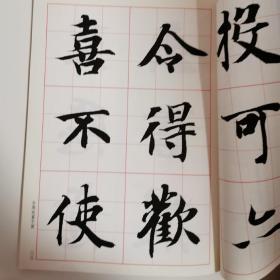 投可
令得歡
喜不使